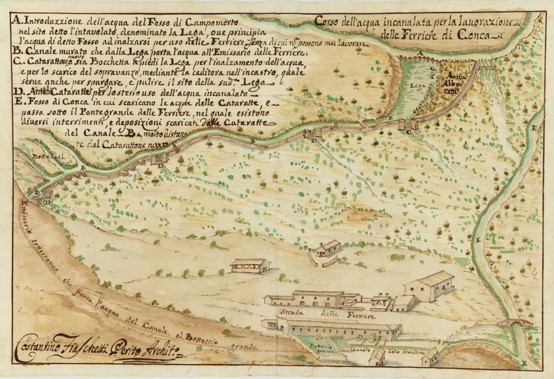 A. Introduzzione dell'acqua del Fosso di Campomorto
nel sito detto l'intavolato, denominato la Lega, ove principia
l'acqua di detto Fosso ad inalzarsi per uso delle Ferriere, senza di cui nō possono mai lavorare
B. Canale murato che dalla Lega porta l'acqua all'Emissario delle Ferriere.
C. Catarattone sia Bocchetta la Lega per l'inalzamento dell'acqua,
e per lo scarico del sopravanzo, mediante la caditora nell'incastro, quale
serve anche per spurgare, e pulire il sito della sudᵃ Lega
D. Cataratte per lo sterio uso dell'acqua incanalata
E. Fosso di Conca in cui scaricano le acque delle Cataratte, e
passa sotto il Ponte grande delle Ferriere, nel quale esistono
diversi interrimenti, e deposizioni scaricate dalle Cataratte
del Canale B. molto distan
te dal Catarattone
Corso dell'acqua incanalata per la lavorazione
delle Ferriere di Conca
A
Lega
B
E
Emissario sotterraneo che porta l'acqua del Canale al Bottaccio grande
Strada delle Ferriere
Costantino Fiaschetti Perito Archito